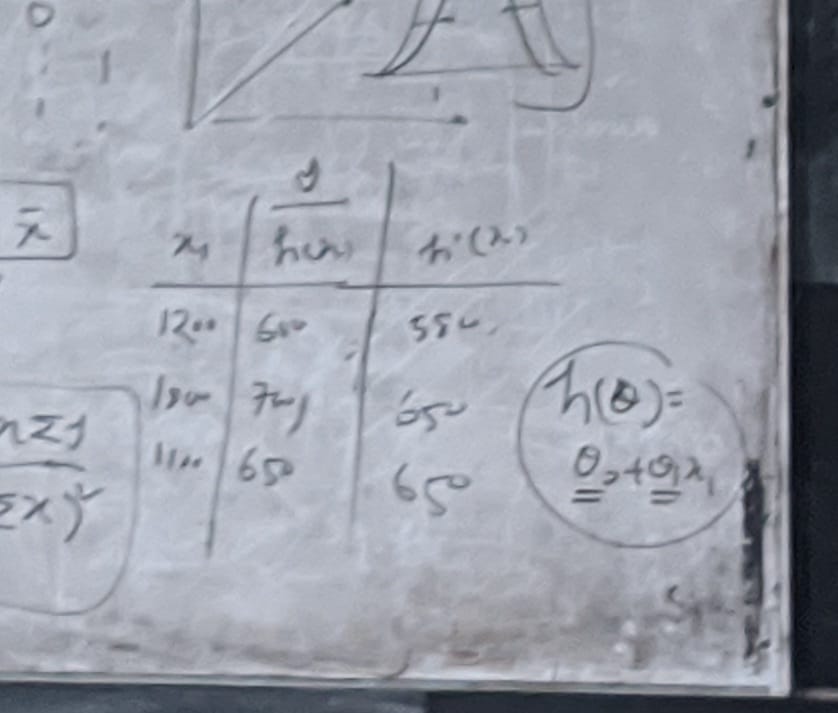 0
x̄
y
x₁ h(x) h'(x)
1200 600 550
700 650
1100 650 650
h(θ)=
θ₀+θ₁x₁
Σy
Σx)²